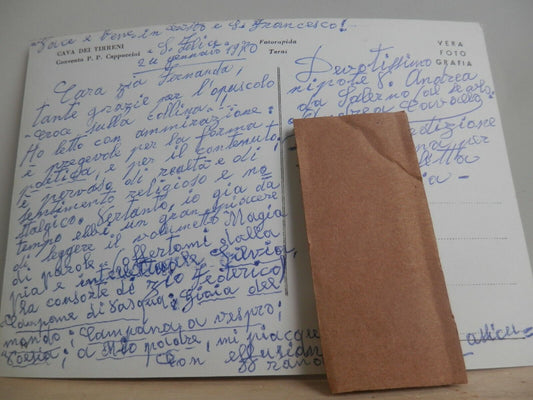 Pace e bene in Cristo e S. Francesco!
CAVA DEI TIRRENI
Convento P. P. Cappuccini
e S. Felice
24 gennaio 1970
Fotorapida
Terni
VERA
FOTO
GRAFIA
Cara zia Fernanda,
tante grazie per l'opuscolo
"Croce sulla collina".
Ho letto con ammirazione:
è pregevole per la forma
poetica, e per il contenuto,
è pervaso di realtà e di
sentimento religioso e no
stalgico. Pertanto, io già da
tempo ebbi un gran piacere
di leggere il volumetto Magia
di parole offertomi dalla
pia e intellettuale Silvia,
la consorte di zio Federico,
Campane di Pasqua; Gioia del
mondo; Campana a vespro;
Poesia; a Mio padre, mi piacque
Con effusion
Devotissimo
nipote S. Andrea
da Salerno
Andrea Cavallo